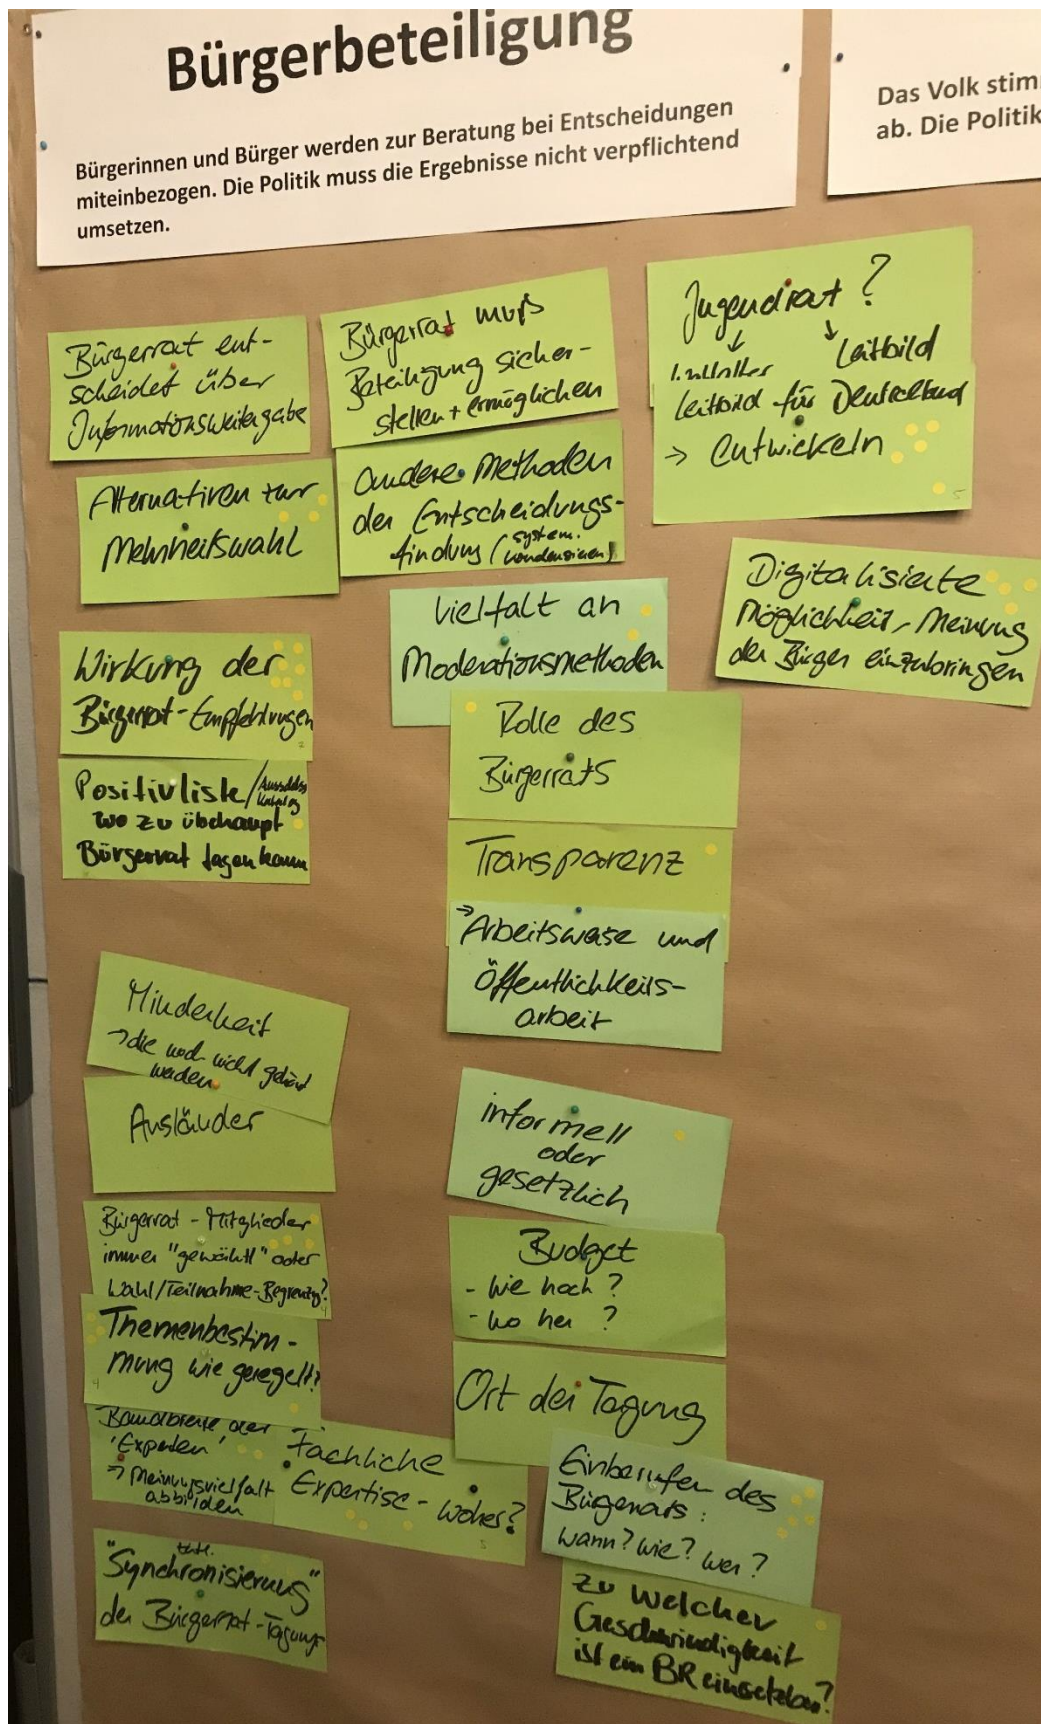 Bürgerbeteiligung
Bürgerinnen und Bürger werden zur Beratung bei Entscheidungen
miteinbezogen. Die Politik muss die Ergebnisse nicht verpflichtend
umsetzen.
Das Volk stim
ab. Die Politik
Bürgerrat ent-
scheidet über
Informationsweitergabe
Bürgerrat muß
Beteiligung sicher-
stellen + ermöglichen
Jugendrat?
↓ ↓
Leitbild
Leitbild für Deutschland
→ entwickeln
Alternativen zur
Mehrheitswahl
andere Methoden
der Entscheidungs-
findung (system.
kondensieren)
Vielfalt an
Moderationsmethoden
Digitalisierte
Möglichkeit, Meinung
der Bürger einzubringen
Wirkung der
Bürgerrat-Empfehlungen
Positivliste/
wo zu überhaupt
Bürgerrat tagen kann
Rolle des
Bürgerrats
Transparenz
→ Arbeitsweise und
Öffentlichkeits-
arbeit
Minderheit
→ die noch nicht gehört
werden
Ausländer
informell
oder
gesetzlich
Bürgerrat - Mitglieder
immer "gewählt" oder
Wahl/Teilnahme-Begrenzg?
Themenbestim-
mung wie geregelt?
4
Budget
- Wie hoch?
- wo her?
Ort der Tagung
Bandbreite der
'Experten'
→ Meinungsvielfalt
abbilden
Fachliche
Expertise - woher?
5
Einberufen des
Bürgerrats:
wann? wie? wer?
"Synchronisierung"
der Bürgerrat-Tagung
zu welcher
Geschwindigkeit
ist ein BR einsetzbar?